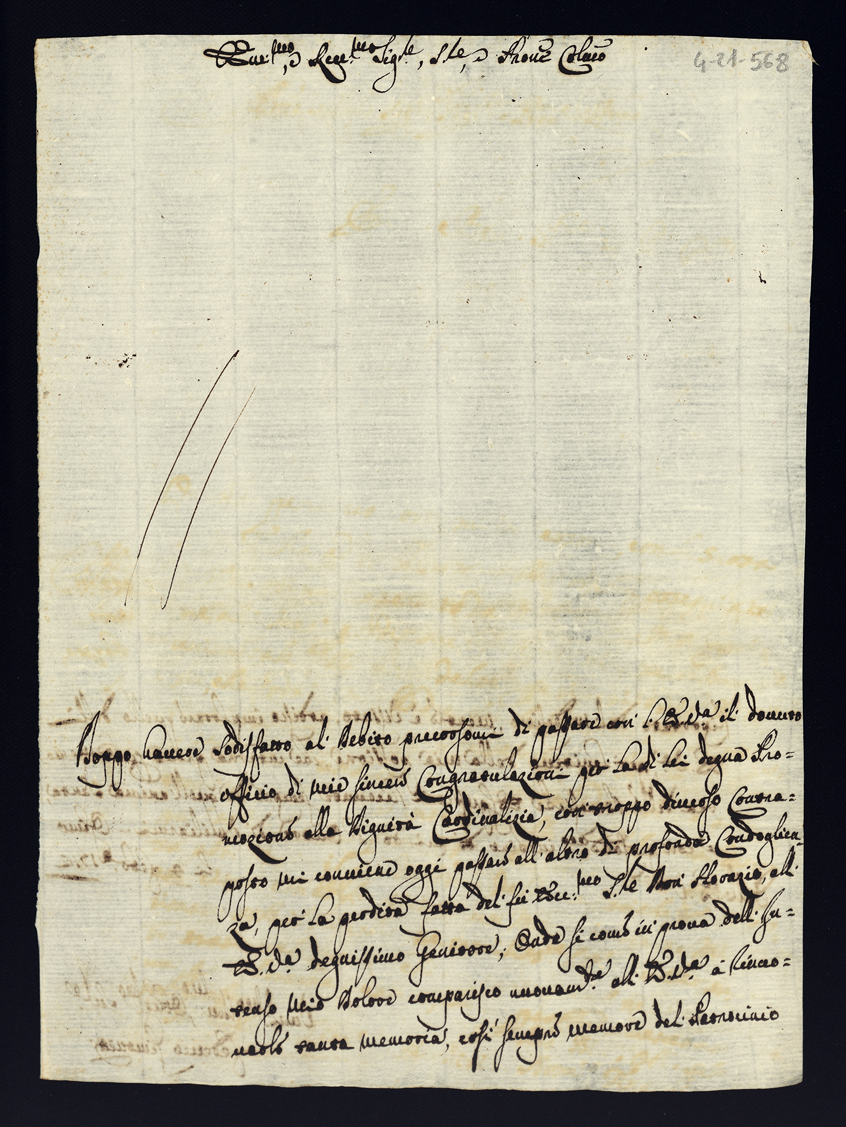 Em.mo, e Rev.mo Sig.re, S.re, e Pron.e Col.mo
4-21-568
Doppo havere sodisfatto al Debito precorsomi di passare con l'E.V.ra il dovuto
officio di mie sincere Congratulazioni per la di lei degna Pro=
mozione alla Dignità Cardinalizia, con troppo diverso Contra=
posto mi conviene oggi passare all'altro di profonda Condoglien
za, per la perdita fatta del fù Ecc.mo S.re Don Horazio, all'
E.V.ra degnissimo Genitore; Onde si come in prova dell'In=
tenso mio Dolore comparisco nuovam.te all'E.V.ra à rinno=
varle tanta memoria, così sempre memore del Patrocinio